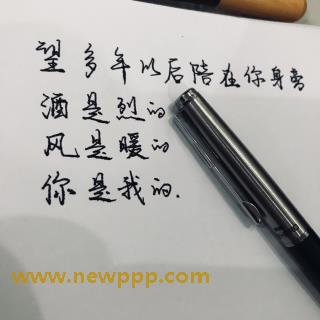 望多年以后陪在你身旁
酒是烈的
风是暖的
你是我的.
www.newppp.com